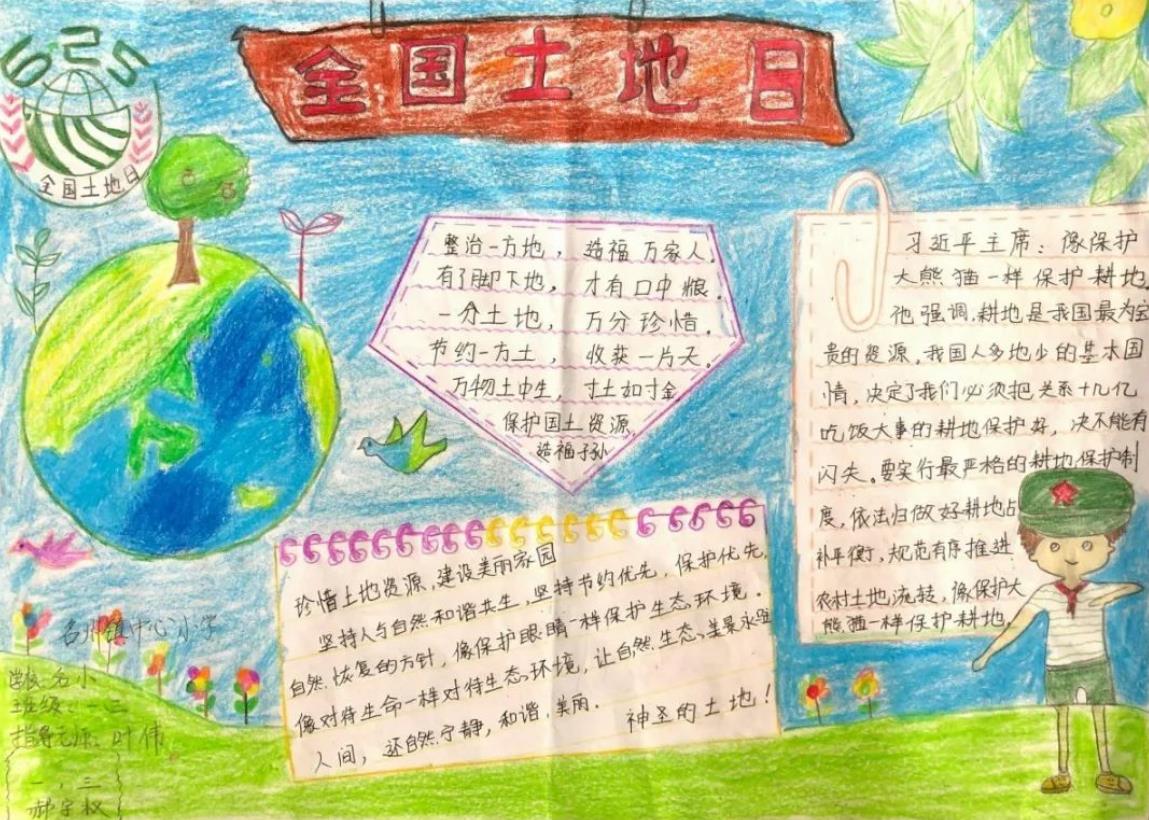 625
全国土地日
全国土地日
整治一方地，造福万家人。
有了脚下地，才有口中粮。
一分土地，万分珍惜。
节约一方土，收获一片天。
万物土中生，寸土如寸金
保护国土资源，
造福子孙
习近平主席：像保护
大熊猫一样保护耕地。
他强调，耕地是我国最为宝
贵的资源，我国人多地少的基本国
情，决定了我们必须把关系十几亿
吃饭大事的耕地保护好，决不能有
闪失。要实行最严格的耕地保护制
度，依法归做好耕地占
补平衡，规范有序推进
农村土地流转，像保护大
熊猫一样保护耕地。
珍惜土地资源，建设美丽家园
坚持人与自然和谐共生，坚持节约优先，保护优先，
自然恢复的方针，像保护眼睛一样保护生态环境。
像对待生命一样对待生态环境，让自然生态美景永驻
人间，还自然宁静，和谐，美丽。
神圣的土地！
名州镇中心小学
学校：名小
班级：一三
指导老师：叶伟
一，三
郝宇